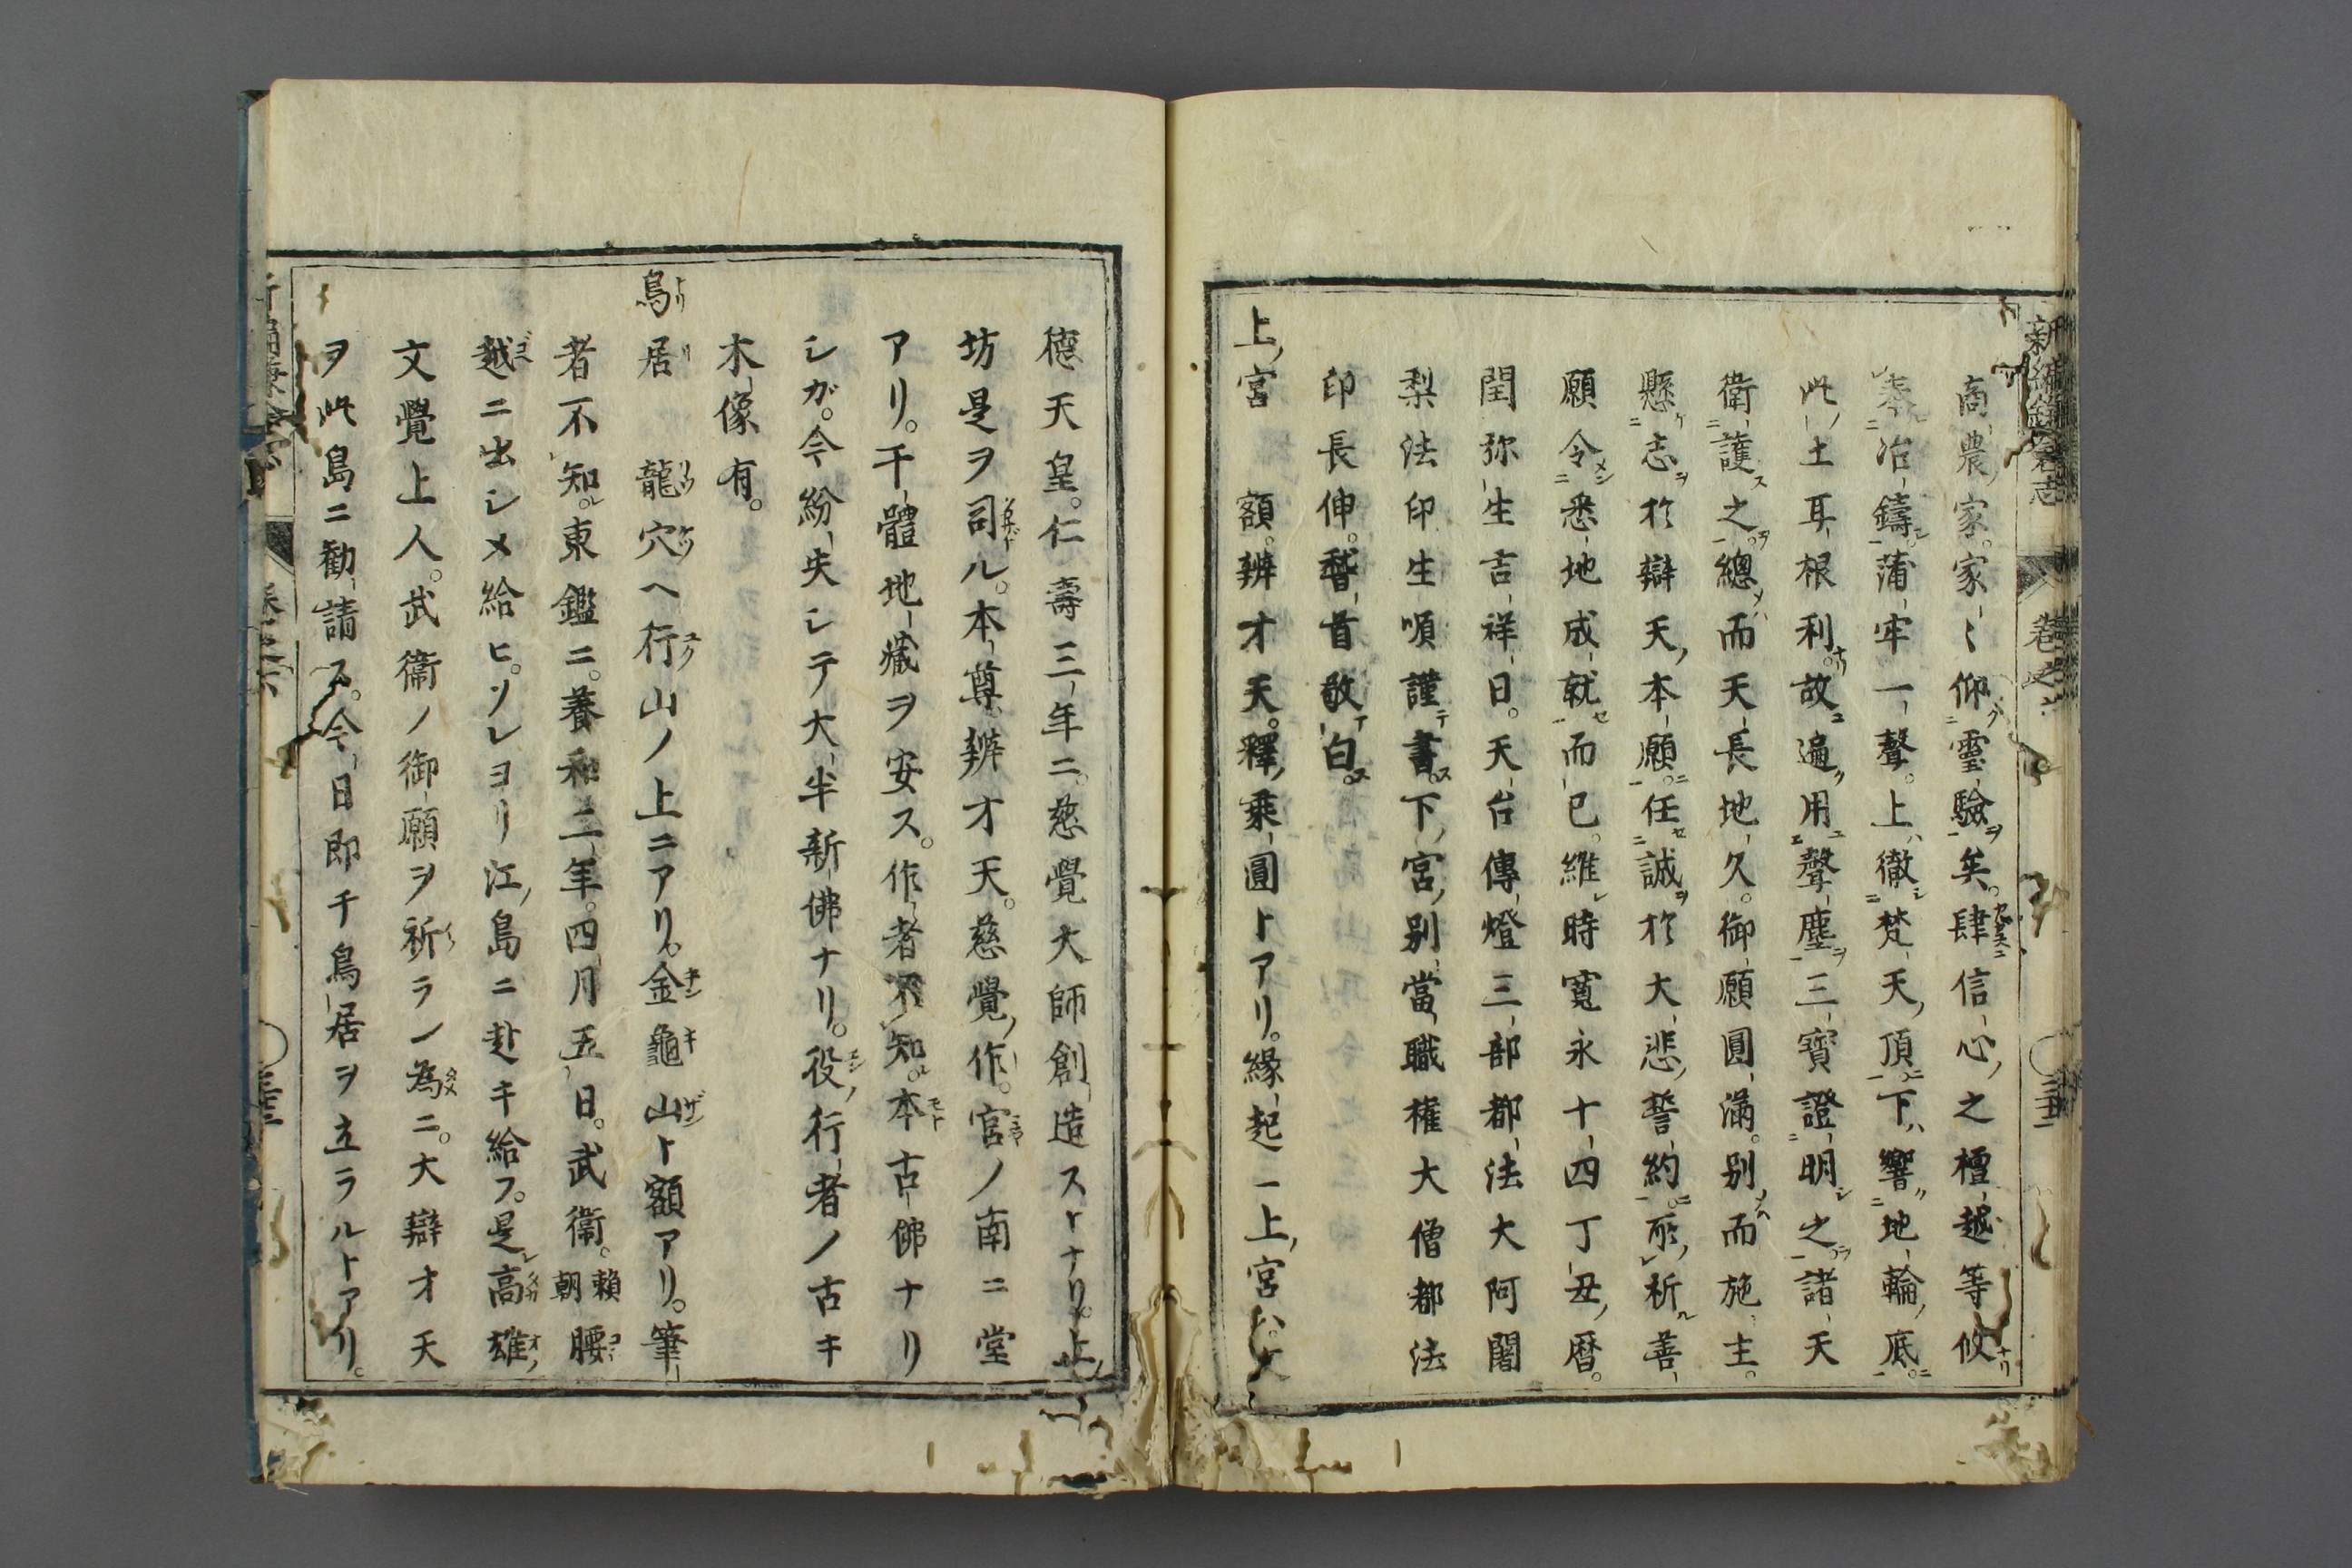 商農家家〻仰靈驗矣。肆信心之檀越等攸
奉冶鑄蒲牢一聲。上徹梵天頂下響地輪底。
此土耳根利。故遍用聲塵三寶證明之諸天
衛護之。總而天長地久。御願圓滿。別而施主。
懸志於辯天本願。任誠於大悲誓約所祈善
願令悉地成就而已。維時寬永十四丁丑暦。
閏弥生吉祥日。天台傳燈三部都法大阿闍
梨法印生順謹書。下宮別當職權大僧都法
印長伸。稽首敬白。
上宮 額。辨才天。釋乘圓トアリ。緣起ニ上宮ハ。文
德天皇。仁壽三年ニ。慈覺大師創造ストナリ。上ノ
坊是ヲ司ル。本尊辨才天。慈覺作。宮ノ南ニ堂
アリ。千體地藏ヲ安ス。作者不知。本古佛ナリ
シガ。今紛失シテ大半新佛ナリ。役行者ノ古キ
木像有。
鳥居 龍穴ヘ行山ノ上ニアリ。金龜山ト額アリ。筆
者不知。東鑑ニ。養和二年。四月五日。武衞。賴朝腰
越ニ出シメ給ヒ。ソレヨリ江島ニ赴キ給フ。是高雄
文覺上人。武衞ノ御願ヲ祈ラン為ニ。大辯才天
ヲ此島ニ勸請ス。今日即チ鳥居ヲ立ラルトアリ。